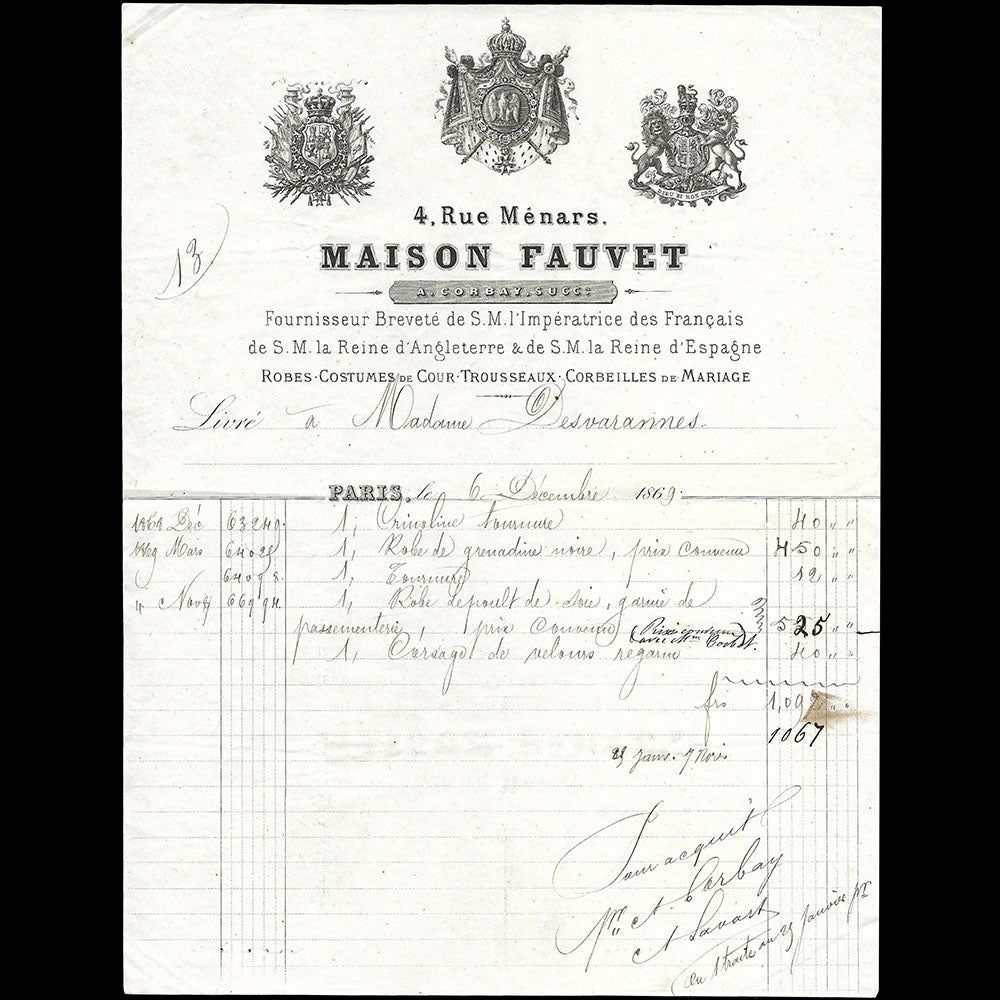 DIEU ET MON DROIT
4, Rue Ménars.
MAISON FAUVET
A. CORBAY, SUCCR
Fournisseur Breveté de S.M. l'Impératrice des Français
de S.M. la Reine d'Angleterre & de S.M. la Reine d'Espagne
ROBES · COSTUMES DE COUR · TROUSSEAUX · CORBEILLES DE MARIAGE
13
Livré à Madame Desvarannes.
PARIS, le 6 Décembre 1869.
1868 Déc 63249. 1, Crinoline tournure 40 " "
1869 Mars 1, Robe de grenadine noire, prix convenu 450 " "
64098. 1, Tournure 12 " "
" Nov 66994. 1, Robe de poult de soie, garnie de
passementerie, prix convenu (Prix convenu avec Mme 525 " "
1, Corsage de velours regarni 40 " "
frs 1,092 " "
1067
25 Janv.
Pour acquit
Pr A. Corbay
en 1 traite au 25 janvier